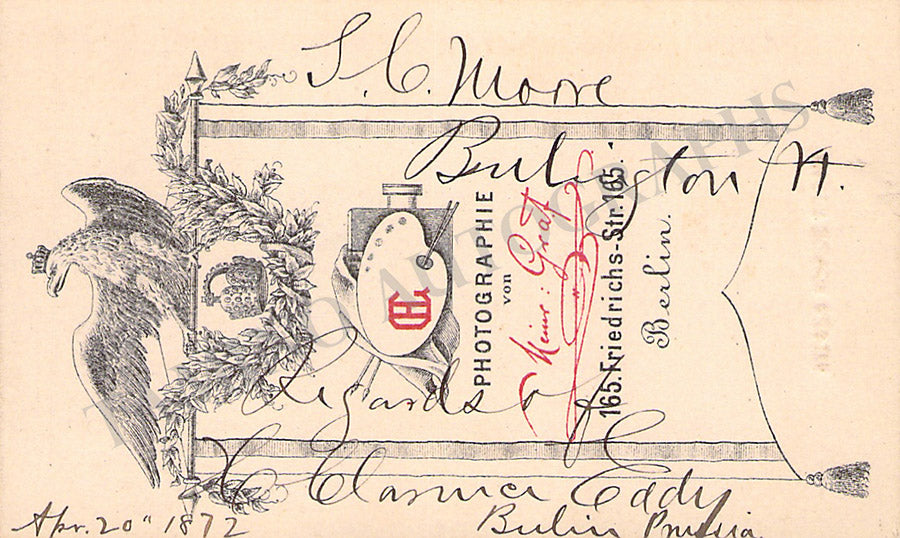 S. C. Moore
Burlington Vt.
Regards of
Clarence Eddy
Apr. 20" 1872
Berlin Prussia
PHOTOGRAPHIE
von
Heinr: Graf
165. Friedrichs-Str. 165.
Berlin.
HG
TAMINO AUTOGRAPHS